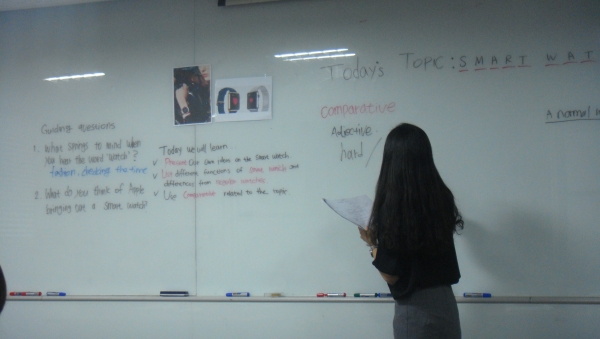 Today's Topic: SMART WAT
Guiding questions
1. What springs to mind when
you hear the word 'watch'?
fashion, checking the time
2. What do you think of Apple
bringing out a smart watch?
Today we will learn
✓ own ideas on the smart watch
✓ List different functions of smart watch and
differences from regular watches
✓ Use Comparative related to the topic
comparative
Adjective
hard
A normal